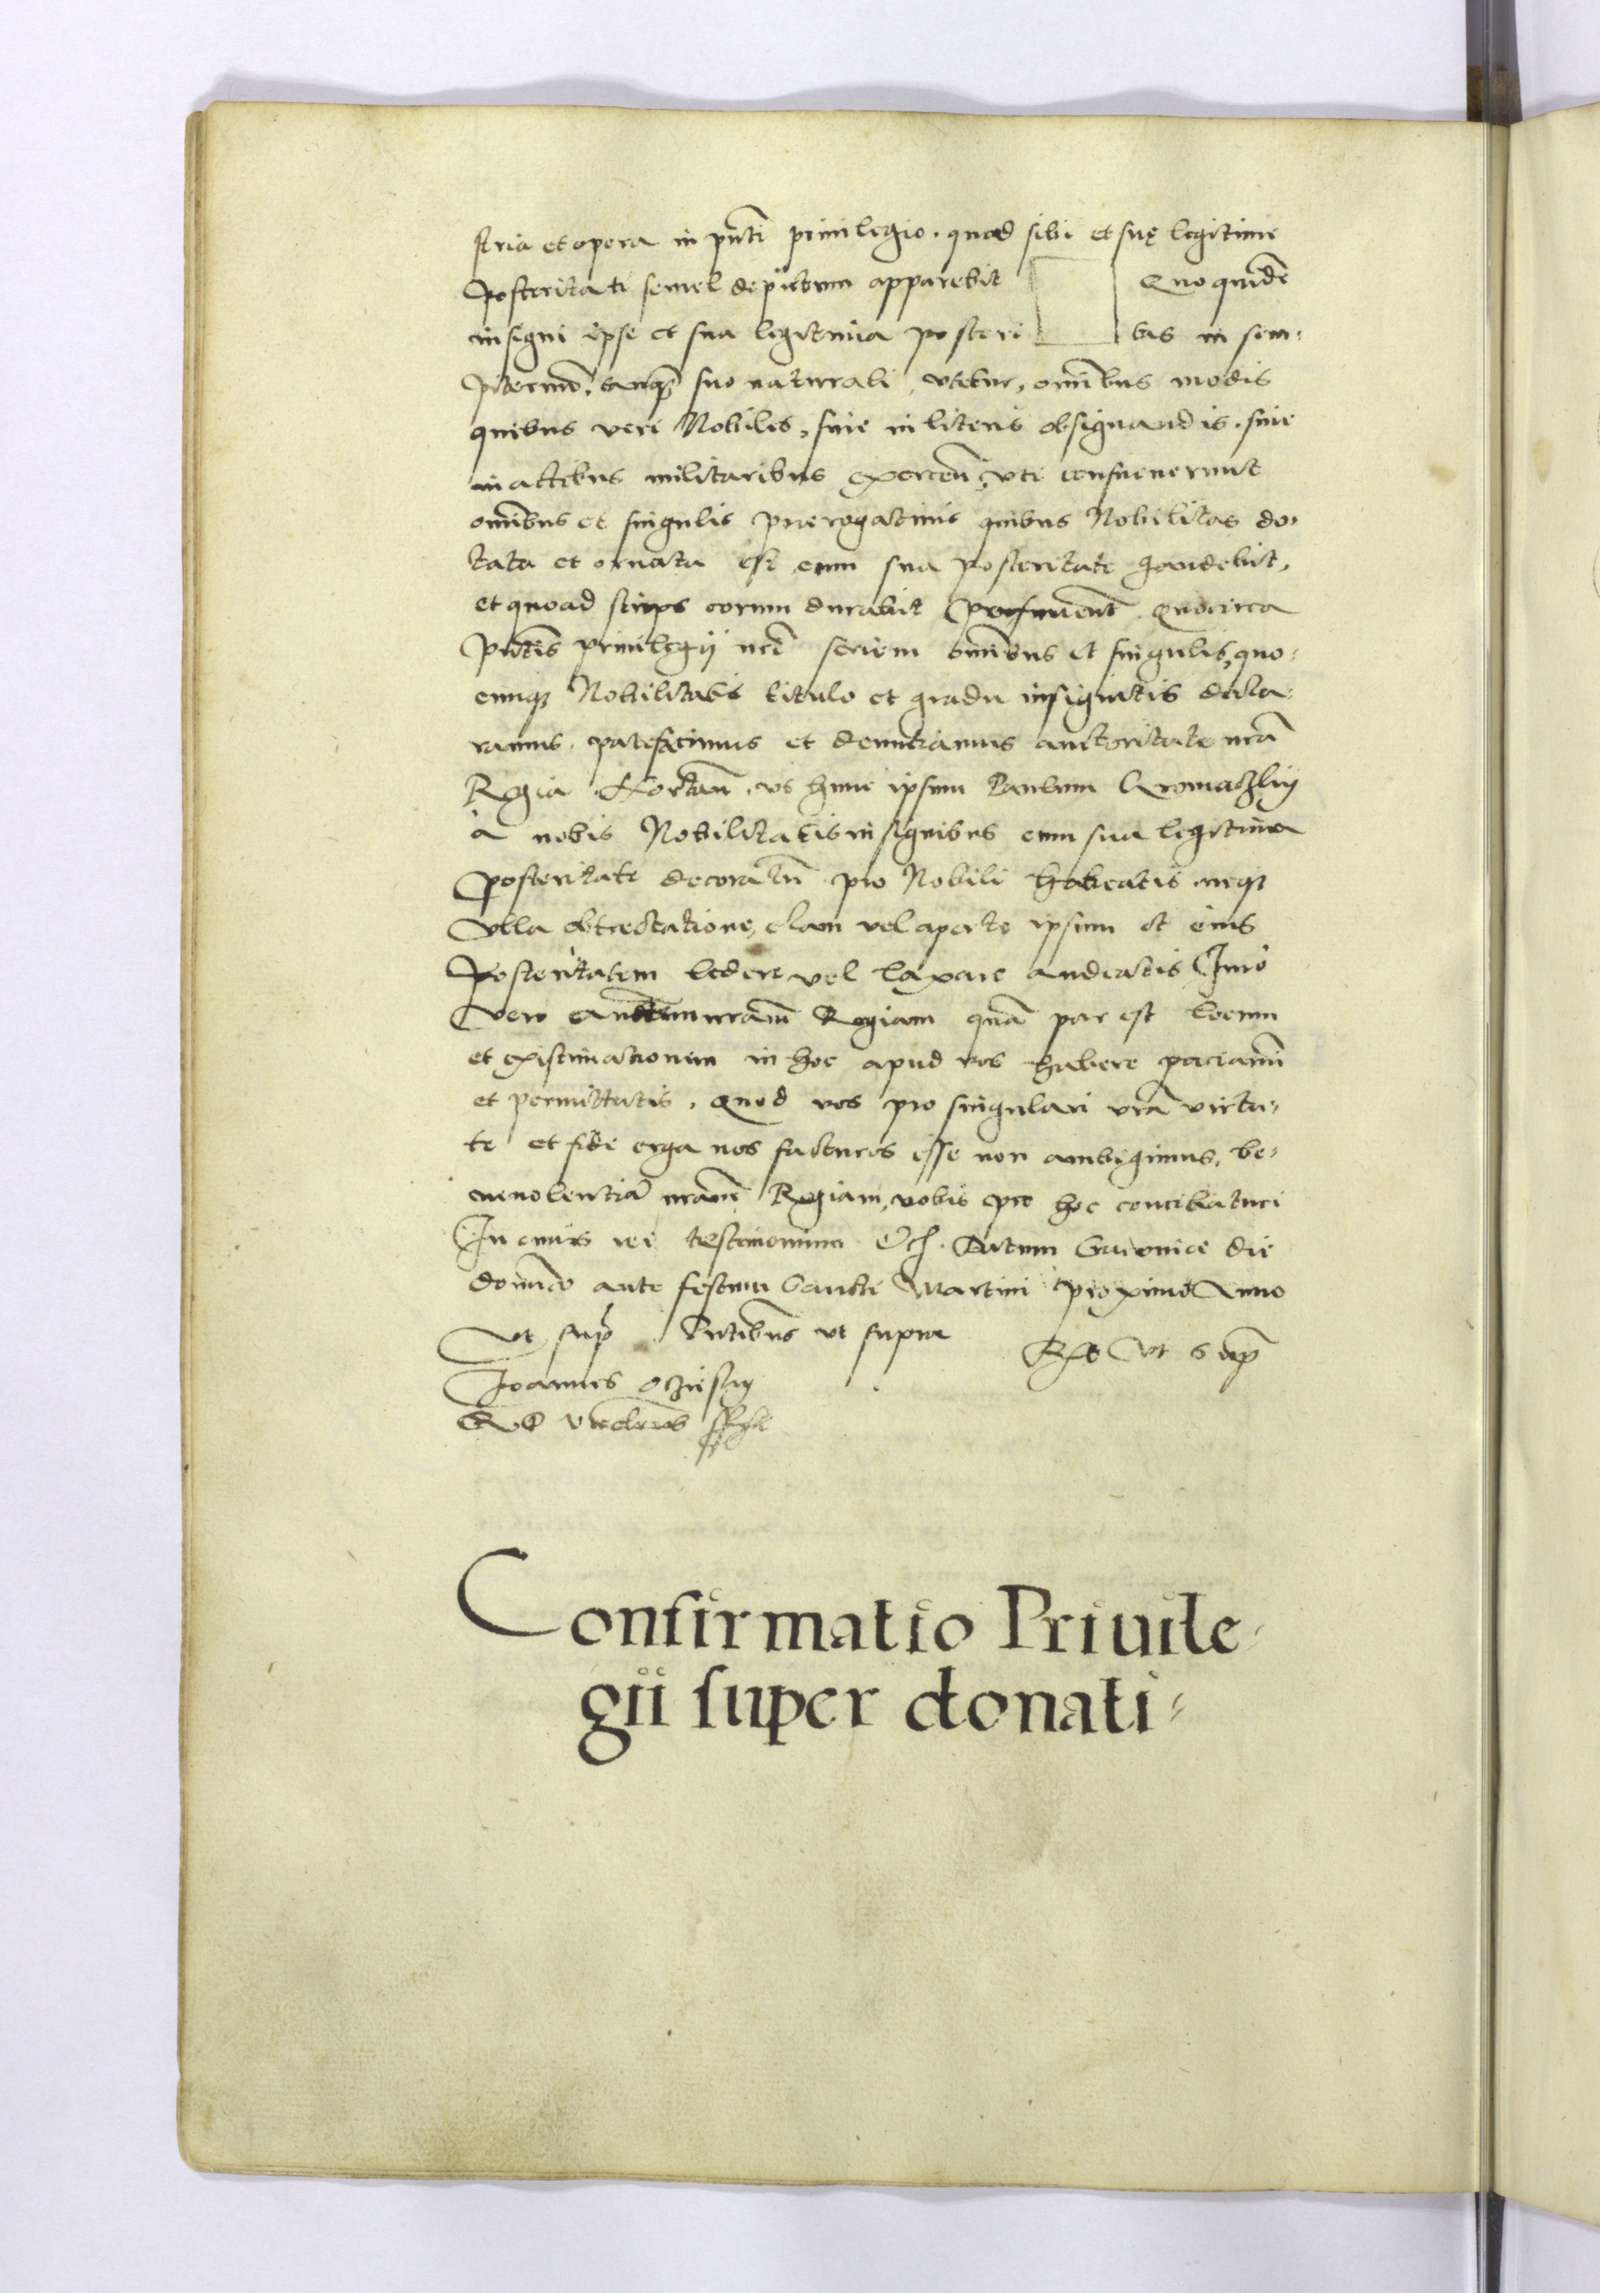 stria et opera in pñti priuilegio. quod sibi et suę legitime
posteritati semel depictum apparebit Quo quidē
insigni ipse et sua legitima posteri tas in sem-
piternū, tanq̃ suo naturali vtetur, omībus modis
quibus veri Nobiles, siue in literis obsignandis, siue
in actibus militaribus exercēn, vti consueuerunt
omībus et singulis prerogatiuis quibus Nobilitas do-
tata et ornata est cum sua posteritate gaudebit,
et quoad stirps eorum durabit Quocirca
pñtis priuilegij nrī seriem omībus et singulis, quo-
cunq; Nobilitatis titulo et gradu insignitis decla-
ramus, patefacimus et auctoritate nrā
Regia Hortañ, vt hunc ipsum Paulum Kromaczky
à nobis Nobilitatis insignibus cum sua legitima
posteritate decoratū pro Nobili habeatis neq;
vlla obtrectatione, clam vel aperte ipsum et eius
posteritatem ledere vel laxare audeatis Imo
vero nram̄ Regiam quā par est locum
et existimationem in hoc apud vos habere paciamī
et permittatis. Quod vos pro singulari vrā virtu-
te et fide erga nos facturos esse non ambigimus, be-
neuolentiā nram̄ Regiam, vobis pro hoc conciliaturi
In cuius rei testimonium Etc. Datum die
domīco ante festum Sancti Martini proximo Anno
Vt supr̃ Pñtibus vt supra
Rx Vt Supr̃
Joannes Oczieski
R P Vicecanc̄s sspt
Confirmatio Priuile-
gii super donati-